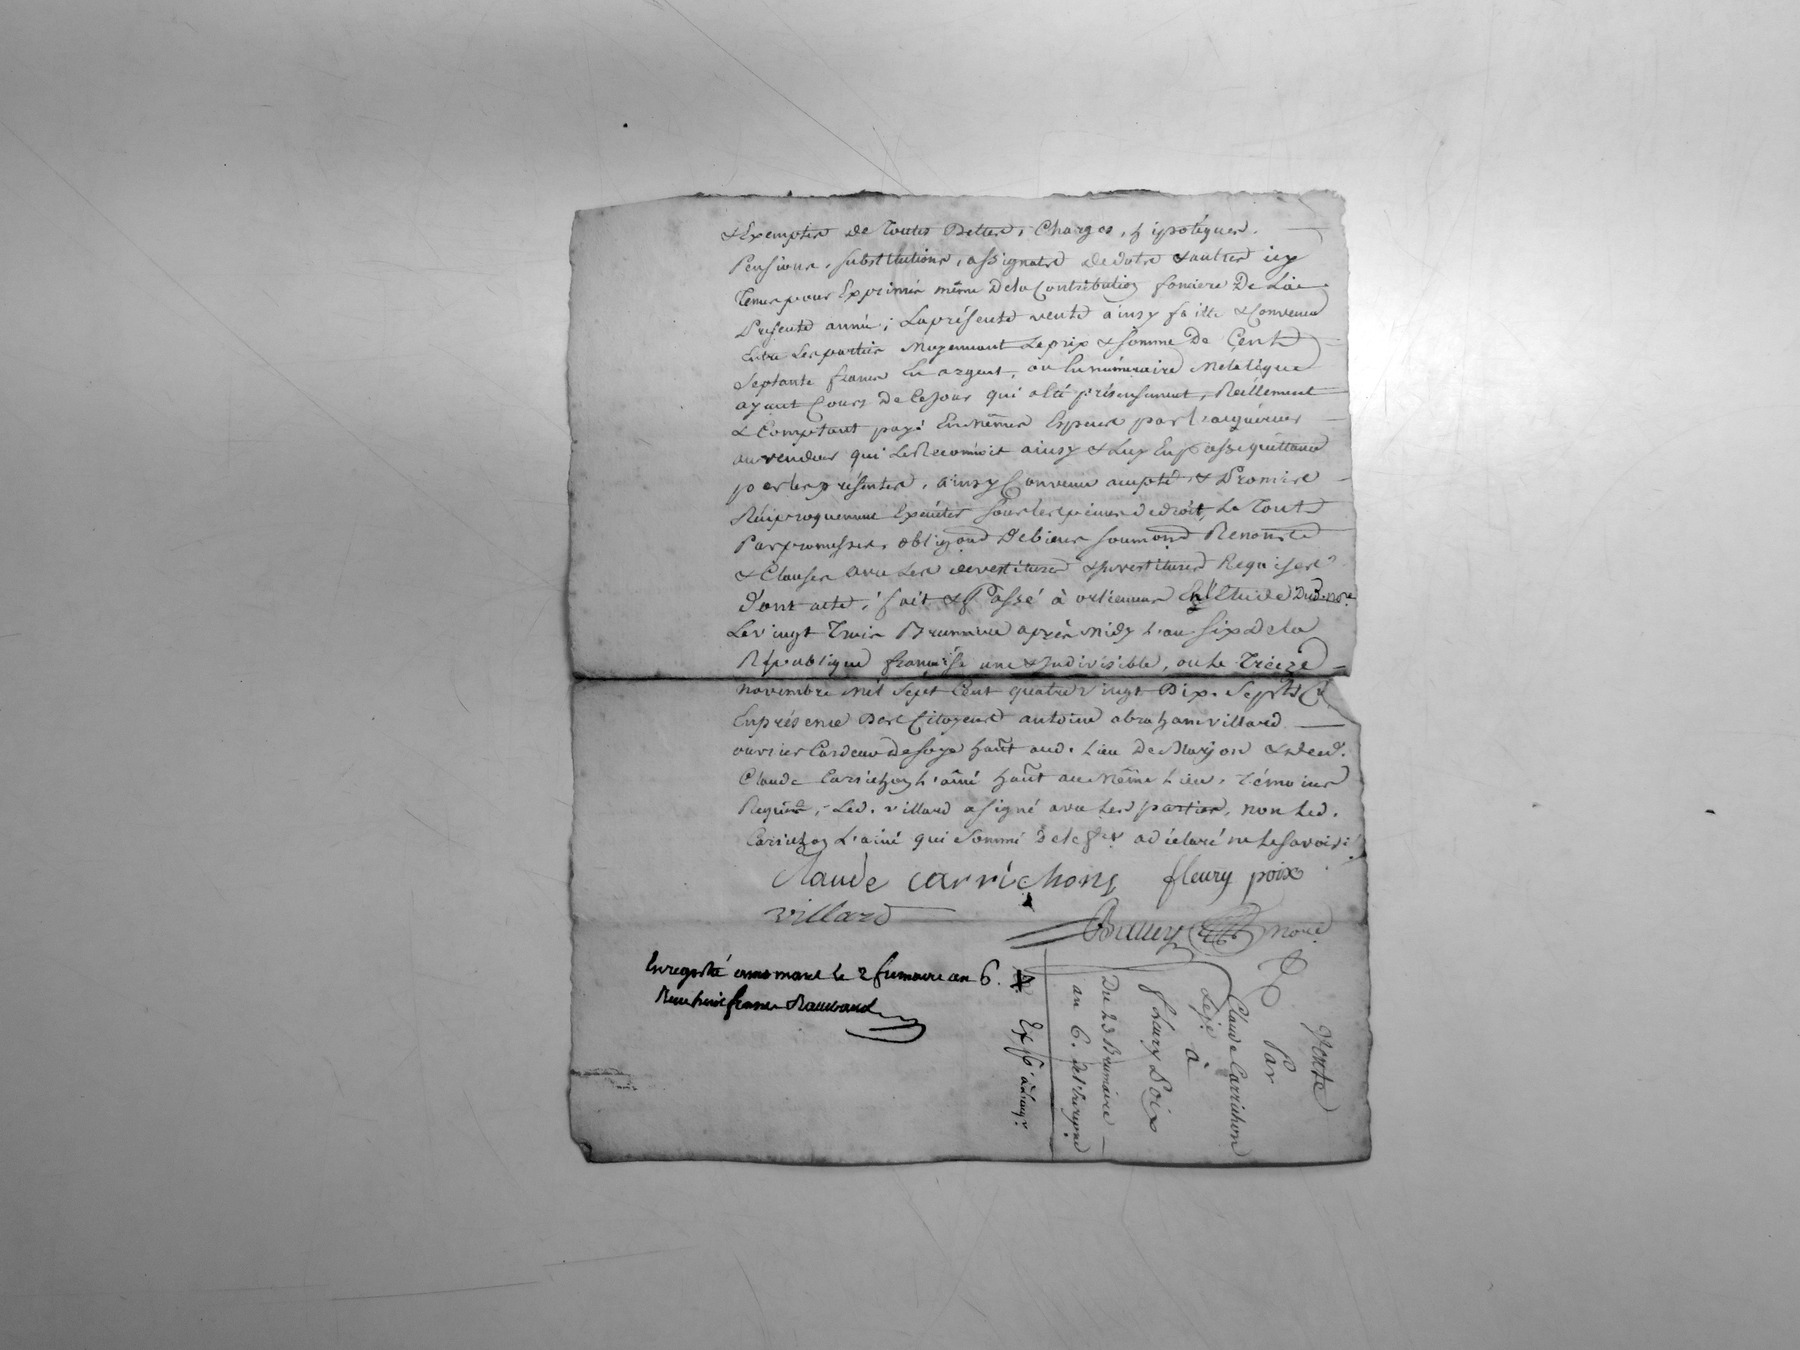 & Exemptes de Toutes Dettes, Charges, hipotèques.
Pensions, substitutions, assignatₑ de dotte & autres icy
Tenus pour Exprimés même de la Contribution fonciere De La
Presente année; La présente vente ainsy faitte & Convenue
Entre Les parties Moyennant Le prix & somme De Cent
Septante francs En argent, ou En numéraire Metalique
ayant Cours De Ce Jour qui a été présentement, Réellement
& Comptant payé En mêmes Especes par L'acquéreur
au vendeur qui Le Reconnoit ainsy & Luy En passe quittance
par les présentes, ainsy Convenu accepté & Promis
Réciproquement Exécuter sous les peines de droit, Le Tout
Par promesses, obligaond De biens soumond Renonond
& Clauses avec Les devestitures & Investitures Requises
dont acte, fait & Passé à En l'Etude Dud. no.re
Le vingt Trois Brumaire après midy L'an six De la
République française une & Indivisible, ou Le Treize
novembre mil Sept Cent quatre vingt Dix-Sept, &
En présence Des Citoyens antoine abraham villard
ouvrier Cardeur de soye haᵗ aud. Lieu De &
Claude Carrichon L'ainé haᵗ au même Lieu, Témoins
Requis; Led. villard a signé avec Les parties, non Led.
Carrichon L'ainé qui sommé De le fe a déclaré ne Le savoir
Claude carrichong fleury poix
villard
nore
Enregistré le 2 frimaire an 6.
Vente
Par
Claude Carrichon
à
fleury Poix
Du 23 Brumaire
an 6.